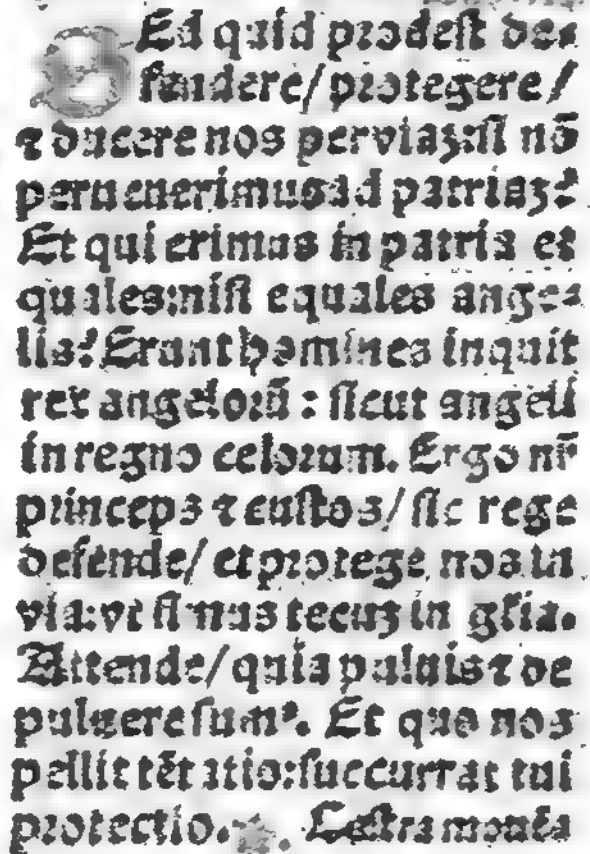 Sed quid prodest de⸗
fendere/ protegere/
⁊ ducere nos per viaʒ: si nō
peruenerimus ad patriaʒ?
Et qui erimus in patria et
quales: nisi equales ange⸗
lis? Erunt homines inquit
rex angeloꝝ̄ : sicut angeli
in regno celorum. Ergo nr̄
princeps ⁊ custos/ sic rege
defende/ et protege nos in
via: vt simus tecuʒ in gl̄ia.
Attende/ quia puluis ⁊ de
puluere sumꝰ. Et quo nos
pellit tēt atio: succurrat tui
protectio. . Castra